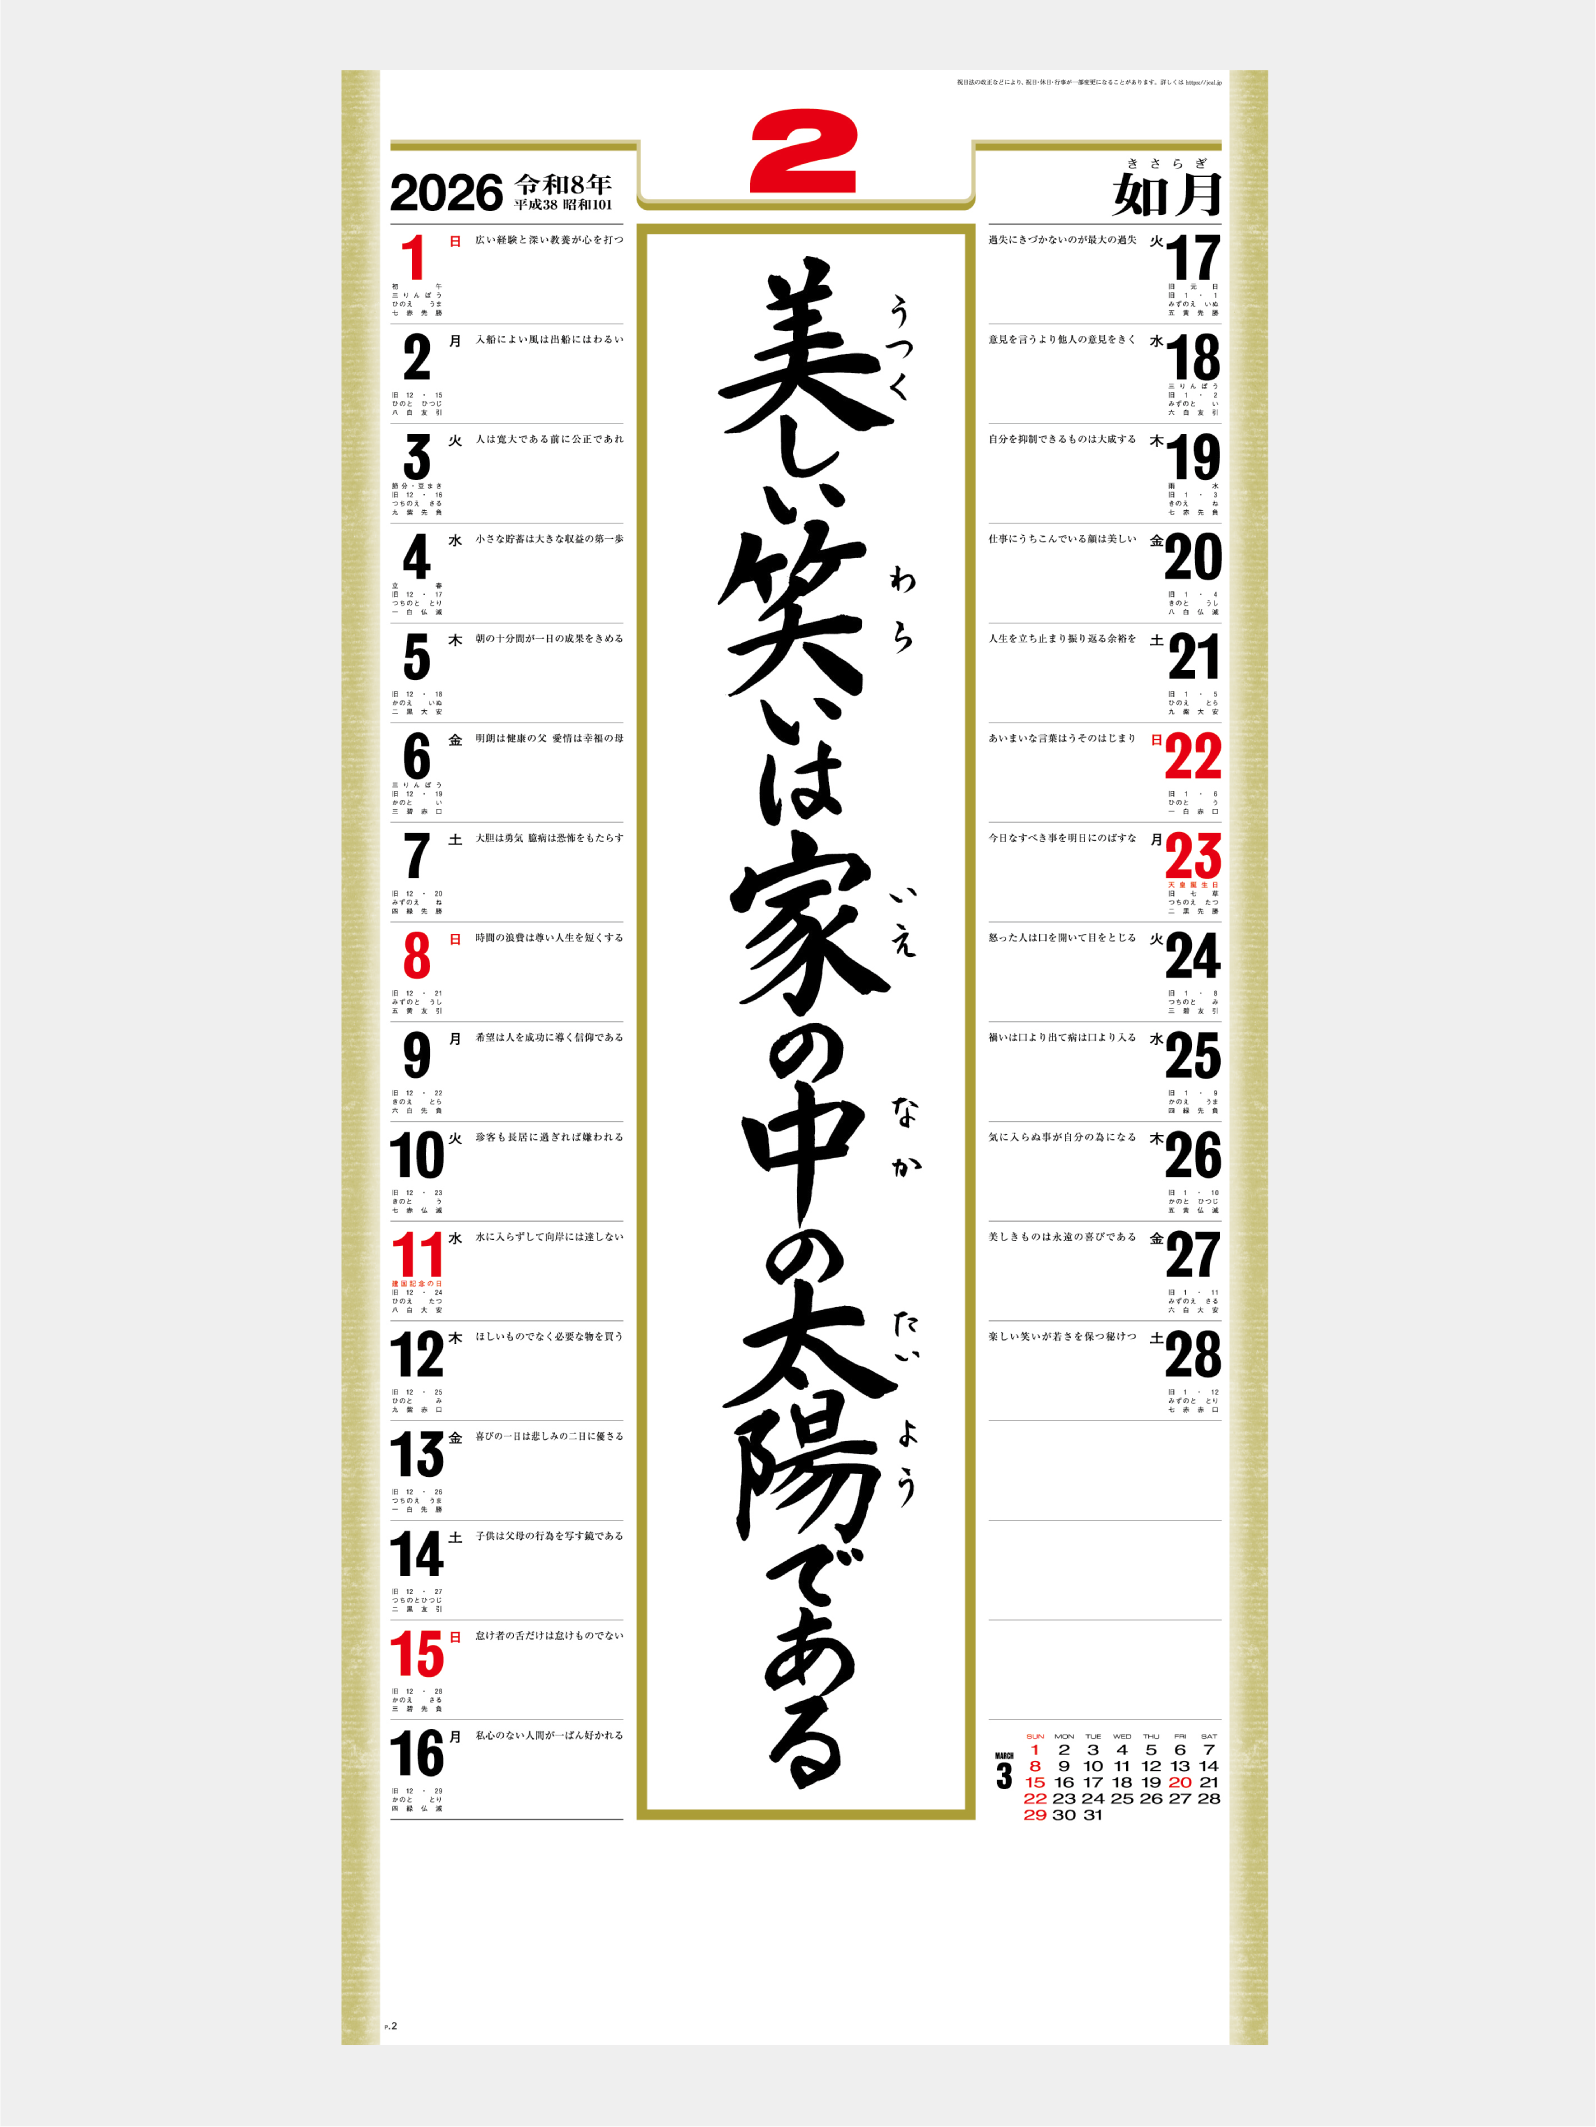 祝日法の改正などにより、祝日・休日・行事が一部変更になることがあります。詳しくは https://jcal.jp
2
2026 令和8年
平成38 昭和101
きさらぎ
如月
美しい笑いは家の中の太陽である
うつく
わら
いえ
なか
たいよう
1 日 広い経験と深い教養が心を打つ
初午
三りんぼう
ひのえ うま
七赤先勝
2 月 入船によい風は出船にはわるい
旧12・15
ひのと ひつじ
八白友引
3 火 人は寛大である前に公正であれ
節分・豆まき
旧12・16
つちのえ さる
九紫先負
4 水 小さな貯蓄は大きな収益の第一歩
立春
旧12・17
つちのと とり
一白仏滅
5 木 朝の十分間が一日の成果をきめる
旧12・18
かのえ いぬ
二黒大安
6 金 明朗は健康の父 愛情は幸福の母
三りんぼう
旧12・19
かのと い
三碧赤口
7 土 大胆は勇気 臆病は恐怖をもたらす
旧12・20
みずのえ ね
四緑先勝
8 日 時間の浪費は尊い人生を短くする
旧12・21
みずのと うし
五黄友引
9 月 希望は人を成功に導く信仰である
旧12・22
きのえ とら
六白先負
10 火 珍客も長居に過ぎれば嫌われる
旧12・23
きのと う
七赤仏滅
11 水 水に入らずして向岸には達しない
建国記念の日
旧12・24
ひのえ たつ
八白大安
12 木 ほしいものでなく必要な物を買う
旧12・25
ひのと み
九紫赤口
13 金 喜びの一日は悲しみの二日に優さる
旧12・26
つちのえ うま
一白先勝
14 土 子供は父母の行為を写す鏡である
旧12・27
つちのとひつじ
二黒友引
15 日 怠け者の舌だけは怠けものでない
旧12・28
かのえ さる
三碧先負
16 月 私心のない人間が一ばん好かれる
旧12・29
かのと とり
四緑仏滅
過失にきづかないのが最大の過失 火 17
旧元日
旧1・1
みずのえ いぬ
五黄先勝
意見を言うより他人の意見をきく 水 18
三りんぼう
旧1・2
みずのと い
六白友引
自分を抑制できるものは大成する 木 19
雨水
旧1・3
きのえ ね
七赤先負
仕事にうちこんでいる顔は美しい 金 20
旧1・4
きのと うし
八白仏滅
人生を立ち止まり振り返る余裕を 土 21
旧1・5
ひのえ とら
九紫大安
あいまいな言葉はうそのはじまり 日 22
旧1・6
ひのと う
一白赤口
今日なすべき事を明日にのばすな 月 23
天皇誕生日
旧七草
つちのえ たつ
二黒先勝
怒った人は口を開いて目をとじる 火 24
旧1・8
つちのと み
三碧友引
禍いは口より出て病は口より入る 水 25
旧1・9
かのえ うま
四緑先負
気に入らぬ事が自分の為になる 木 26
旧1・10
かのと ひつじ
五黄仏滅
美しきものは永遠の喜びである 金 27
旧1・11
みずのえ さる
六白大安
楽しい笑いが若さを保つ秘けつ 土 28
旧1・12
みずのと とり
七赤赤口
MARCH
3
SUN MON TUE WED THU FRI SAT
1 2 3 4 5 6 7
8 9 10 11 12 13 14
15 16 17 18 19 20 21
22 23 24 25 26 27 28
29 30 31
P.2